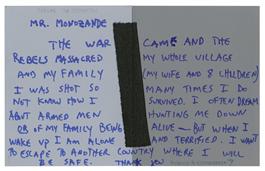 MR. MONOZANDE
THE WAR CAME AND THE
REBELS MASSACRED MY WHOLE VILLAGE
AND MY FAMILY (MY WIFE AND 8 CHILDREN)
I WAS SHOT SO MANY TIMES I DO
NOT KNOW HOW I SURVIVED. I OFTEN DREAM
ABOUT ARMED MEN HUNTING ME DOWN
OR OF MY FAMILY BEING ALIVE — BUT WHEN I
WAKE UP I AM ALONE AND TERRIFIED. I WANT
TO ESCAPE TO ANOTHER COUNTRY WHERE I WILL
BE SAFE. THANK YOU